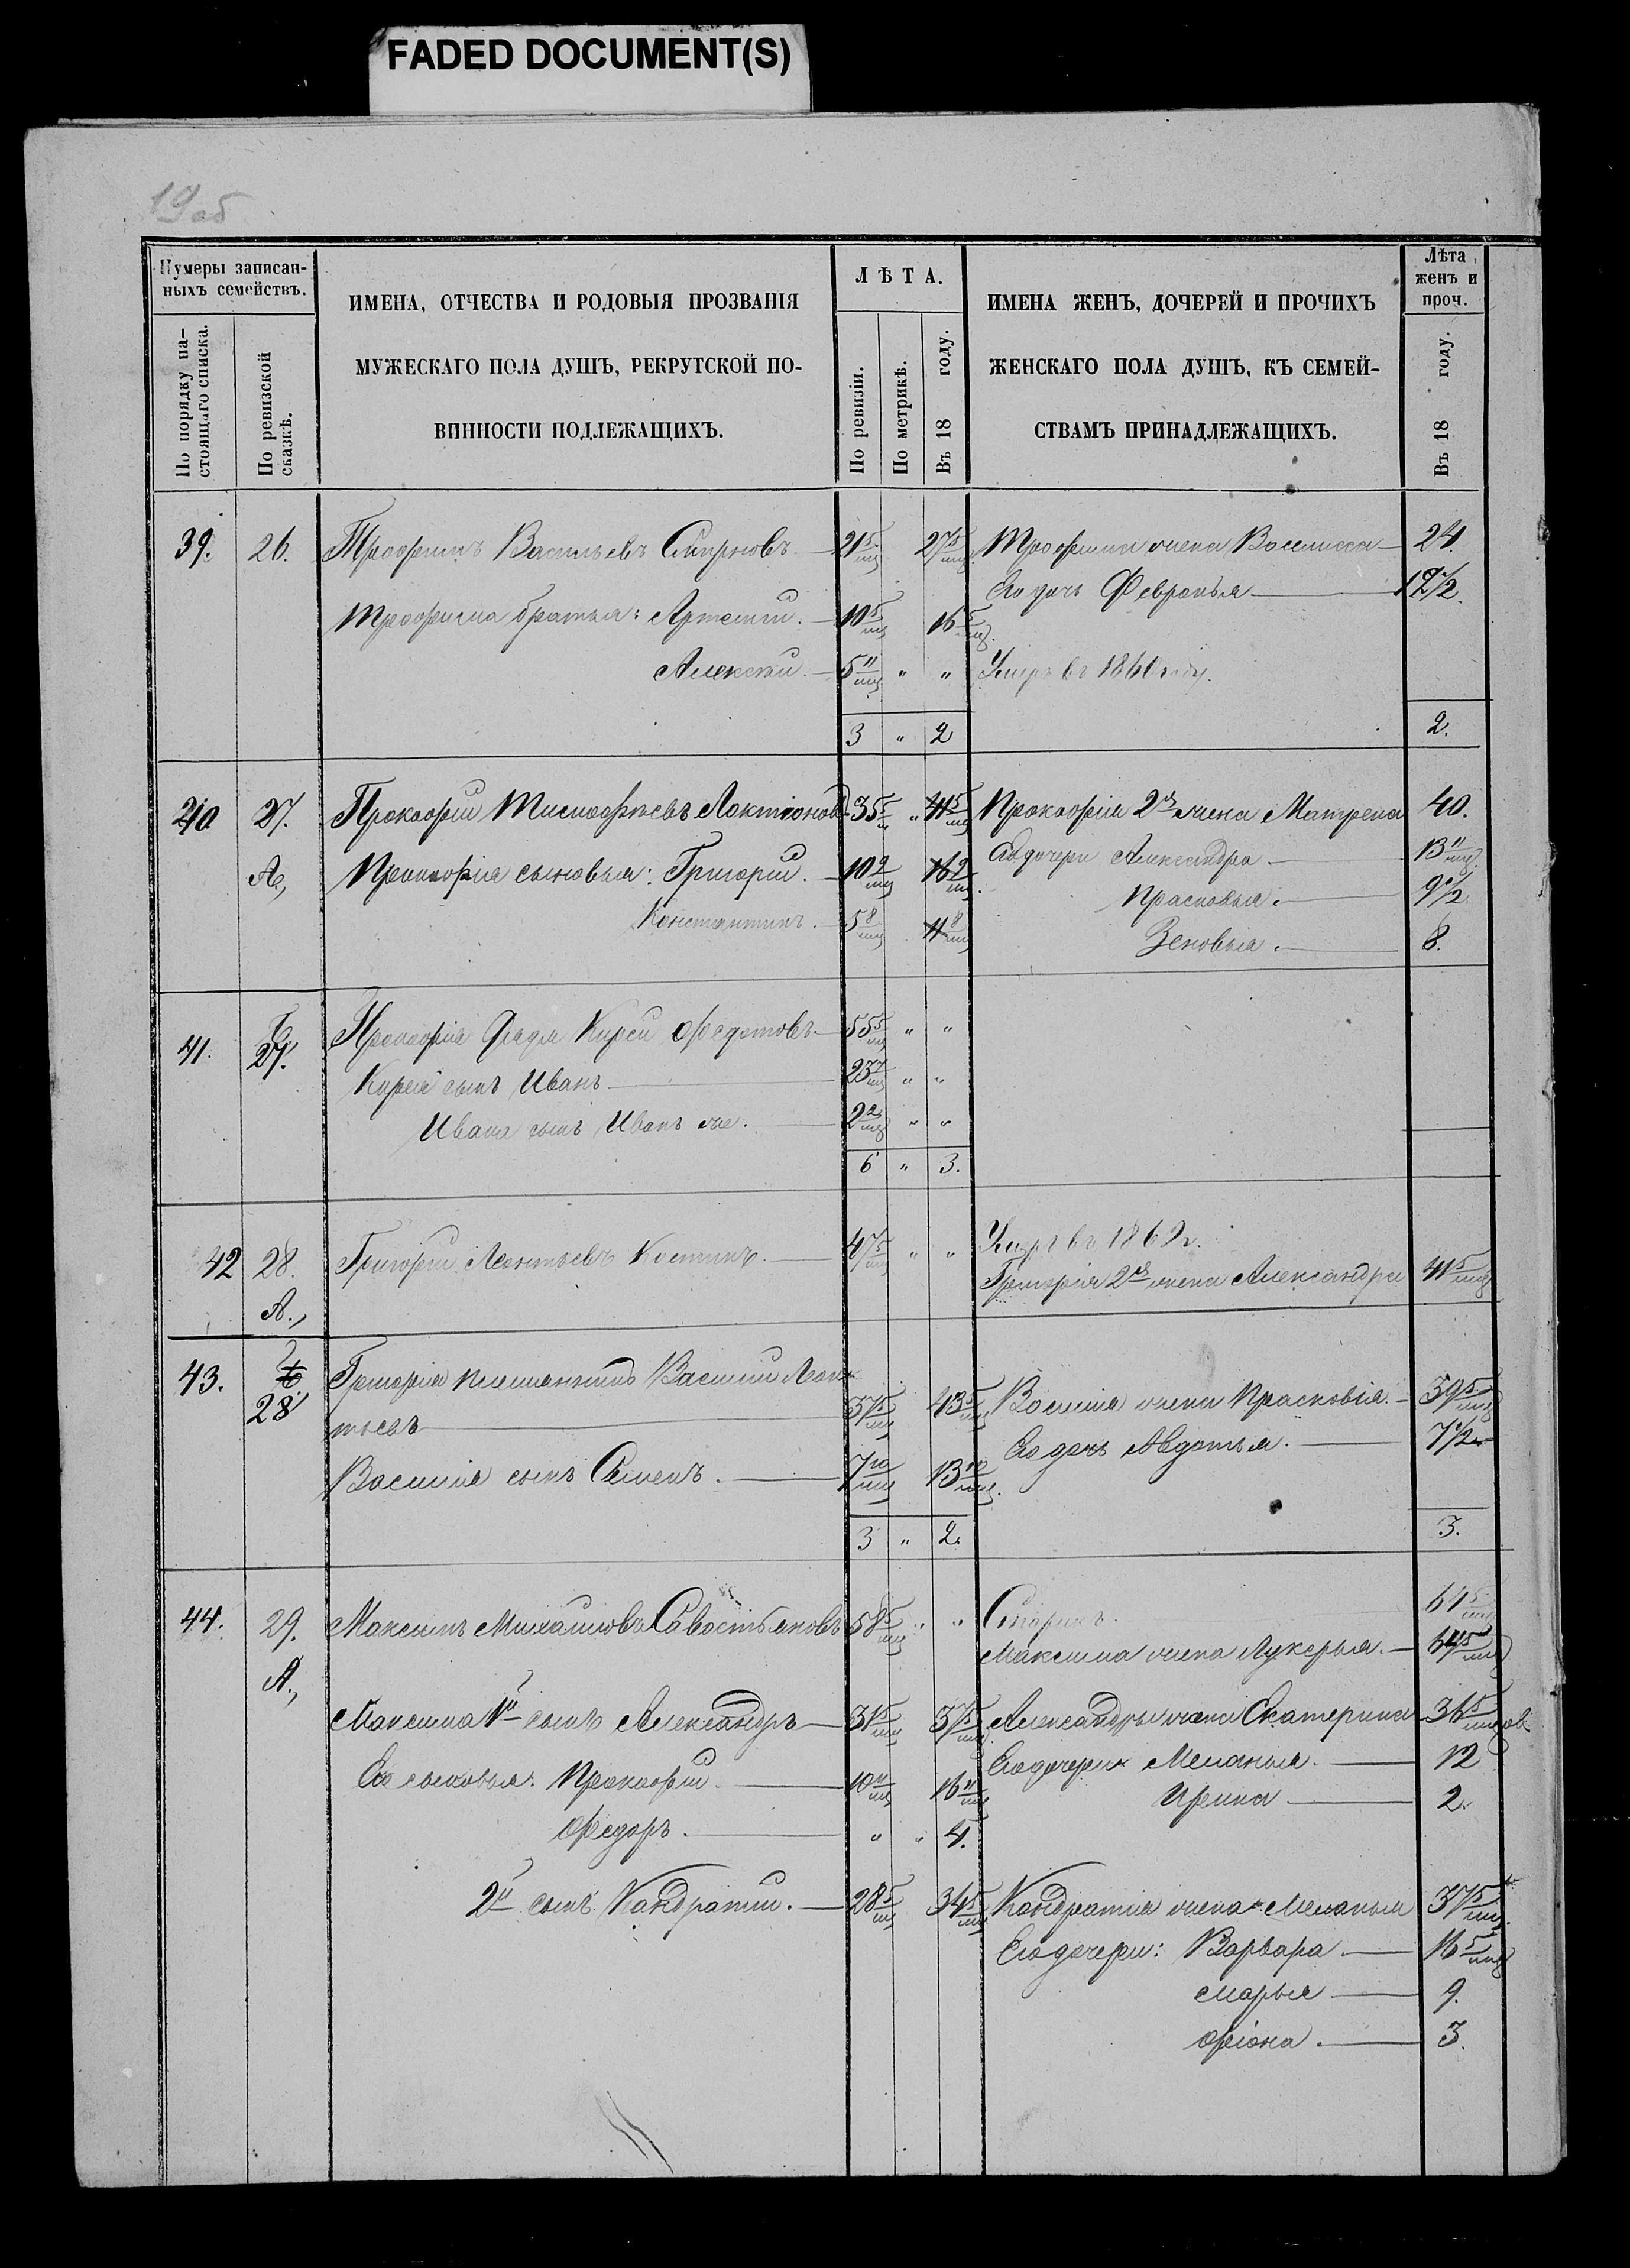 FADED DOCUMENT(S)
19об
Нумеры записан-
ныхъ семействъ.
По порядку на-
стоящаго списка.
По ревизской
сказкѣ.
ИМЕНА, ОТЧЕСТВА И РОДОВЫЯ ПРОЗВАНІЯ
МУЖЕСКАГО ПОЛА ДУШЪ, РЕКРУТСКОЙ ПО-
ВИННОСТИ ПОДЛЕЖАЩИХЪ.
ЛѢТА.
По ревизіи.
По метрикѣ.
Въ 18 году.
ИМЕНА ЖЕНЪ, ДОЧЕРЕЙ И ПРОЧИХЪ
ЖЕНСКАГО ПОЛА ДУШЪ, КЪ СЕМЕЙ-
СТВАМЪ ПРИНАДЛЕЖАЩИХЪ.
Лѣта
женъ и
проч.
Въ 18 году.
39. 26. Трофимъ Васильевъ Смирновъ 21 5/мц 27 5/мц Трофима жена Василиса 24.
Его дочь Февронья 1 1/2
Трофима братья: Артемій. 10 5/мц 16 5/мц
Алексѣй 5 11/мц " " Умеръ въ 1860 году.
3 " 2 2.
40 27. Прокофій Тимофѣевъ Локтіоновъ 35 5/м " 41 5/мц Прокофія 2я жена Матрена 40.
А, Прокофія сыновья: Григорій. 10 2/мц 16 2/мц Его дочери Александра 13 11/мц
Константинъ. 5 8/мц 11 8/мц Прасковья. 9 1/2
Зеновья. 8.
41. Б. 27. Прокофія дядя Кирей Федотовъ 55 5/мц " "
Кирея сынъ Иванъ 23 7/мц " "
Ивана сынъ Иванъ же. 2 2/мц " "
6 " 3.
42 28. Григорій Леонтьевъ Костинъ. 47 5/мц " " Умеръ въ 1862 г.
А., Григорія 2я жена Александра 41 5/мц
43. Б. 28 Григорія племянникъ Василій Леон-
тьевъ 37 5/мц 43 5/мц Василія жена Прасковія. 39 5/мц
Его дочь Авдотья. 7 1/2
Василія сынъ Семенъ. 7 10/мц 13 10/мц
3 " 2. 3.
44. 29. Максимъ Михайловъ Савостьяновъ 58 5/мц " " Старикъ. 64 5/мц
А., Максима жена Лукерья. 64 5/мц
Максима 1й сынъ Александръ 31 5/мц 37 5/мц Александры жена Екатерина 36 5/мц
Его сыновья: Прокофій. 10 11/мц 16 11/мц Его дочери Меланья. 12
Ирина 2.
Федоръ. " " 4.
2й сынъ Кандратій. 28 5/мц 34 5/мц Кандратія жена Меланья 37 5/мц
Его дочери: Варвара 16 5/мц
Марья 9.
Фіона. 3.